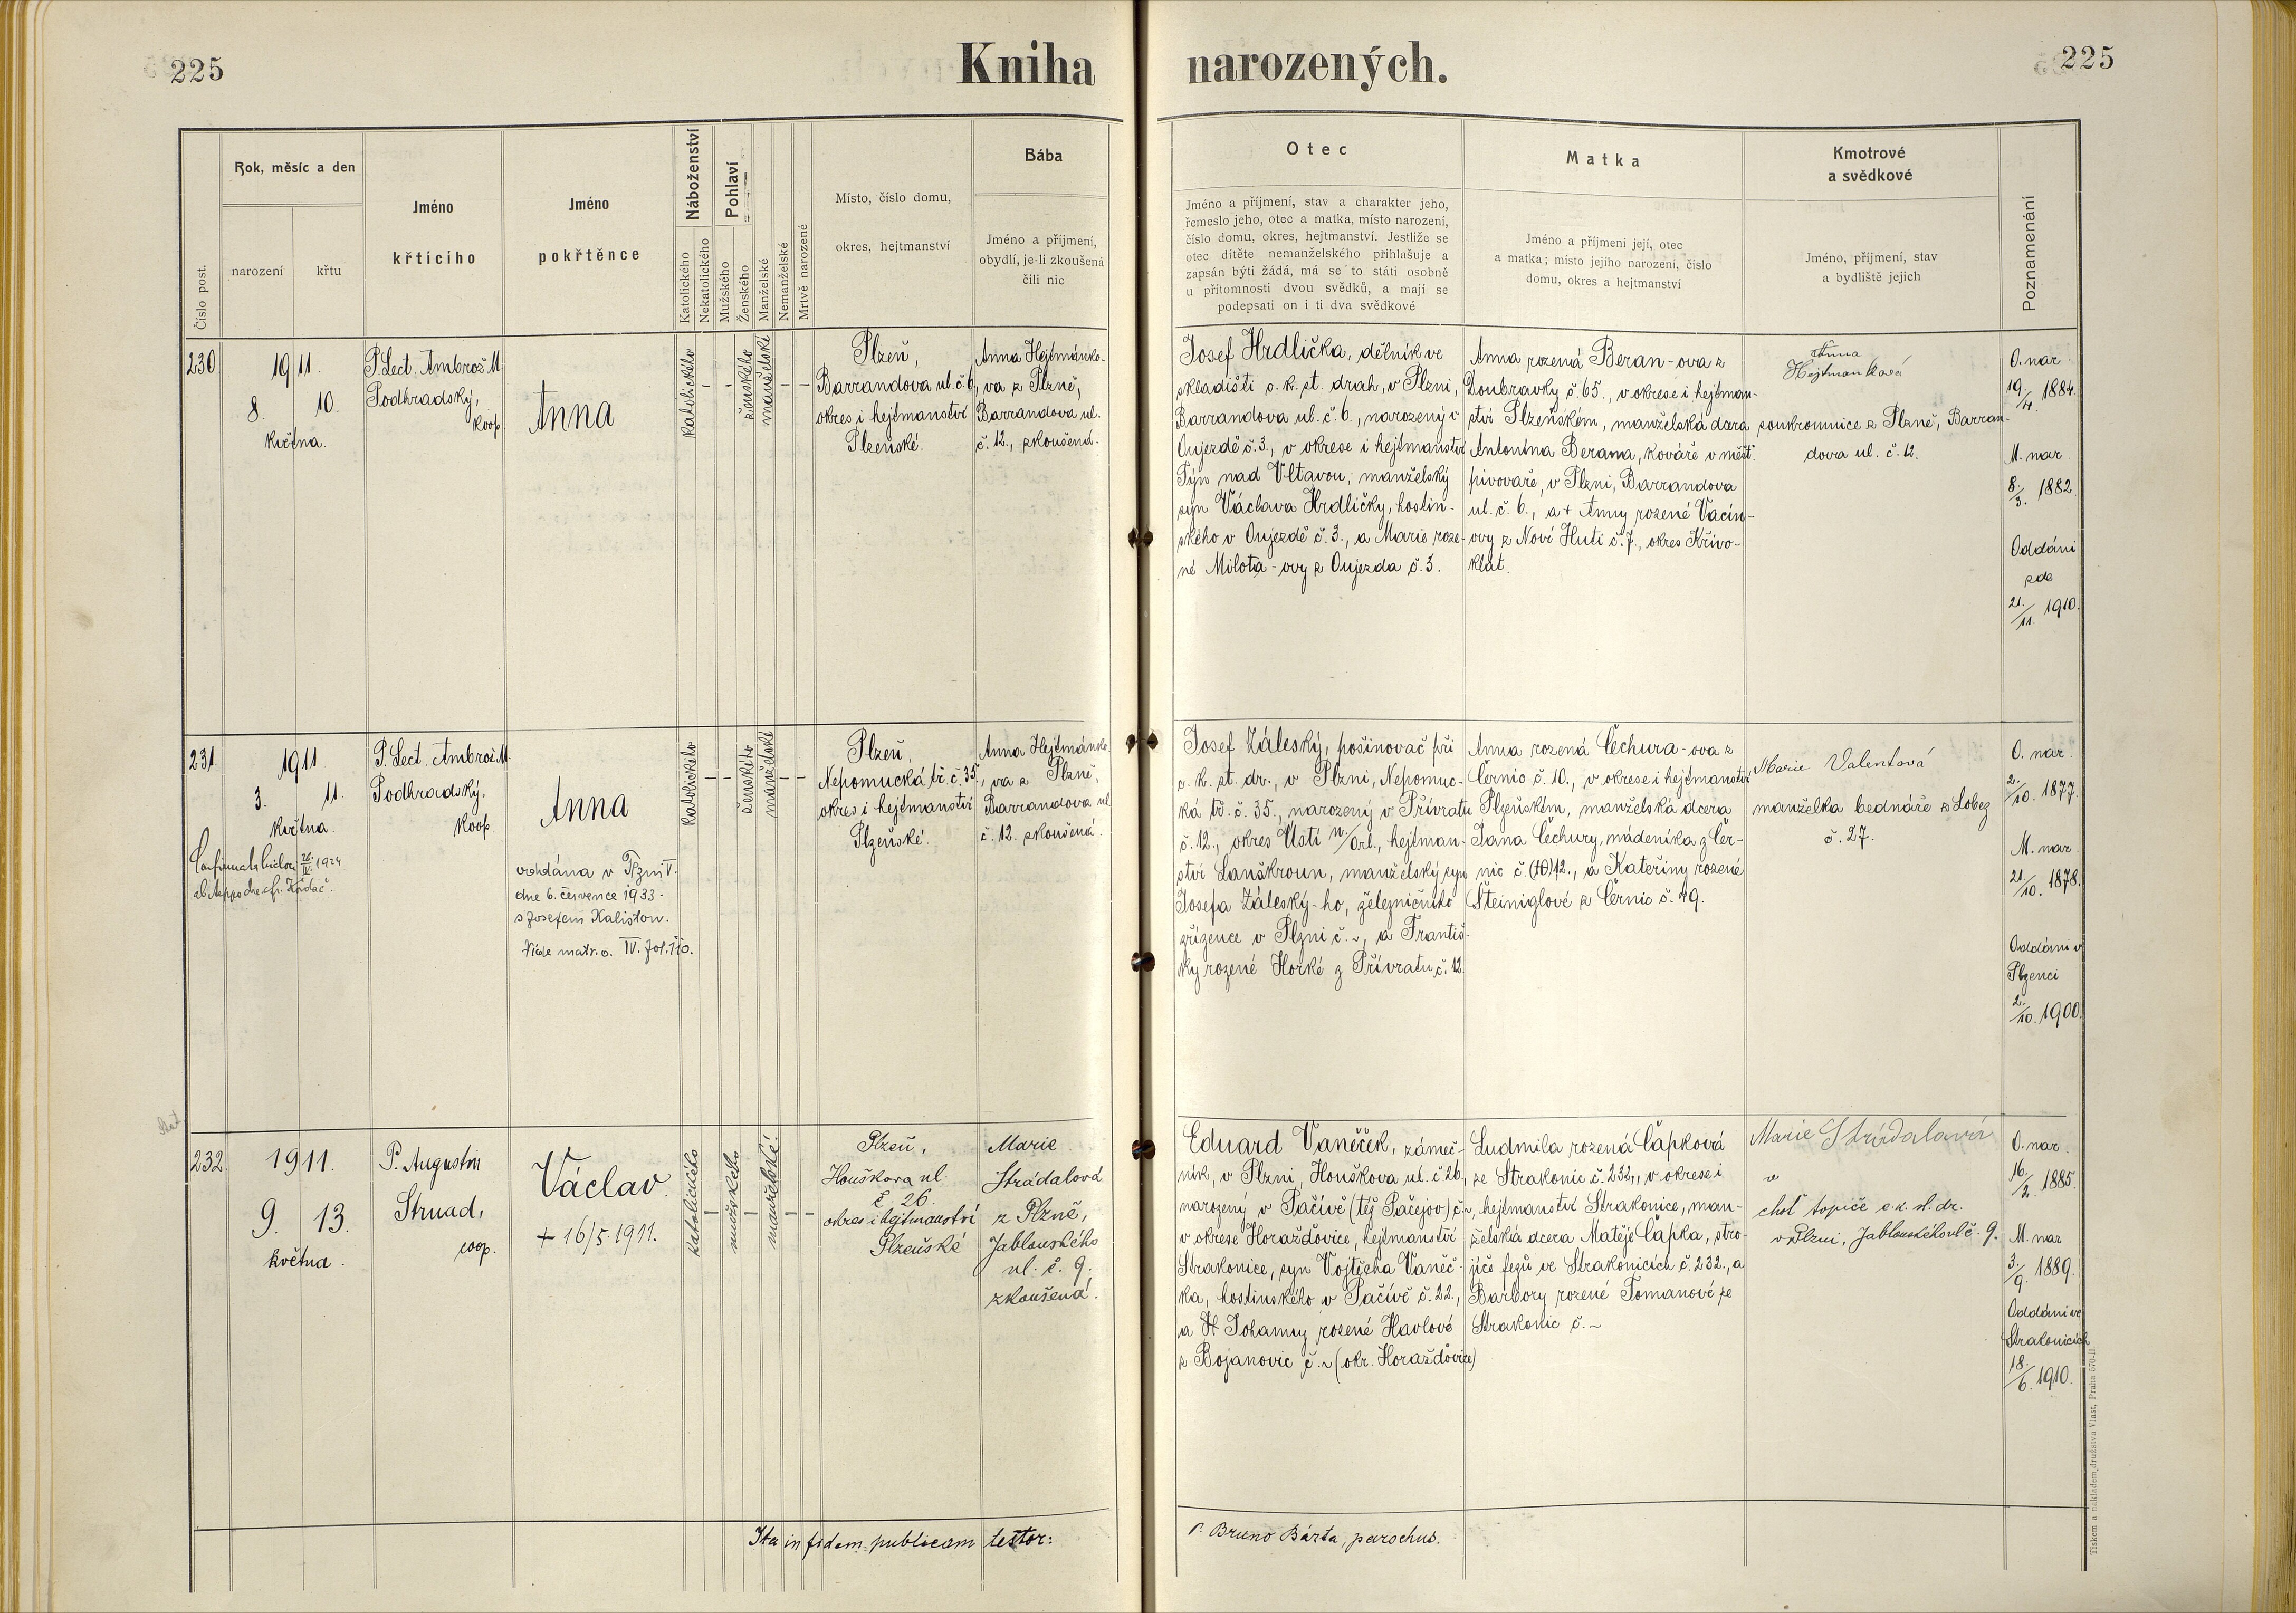 225
Kniha narozených.
225
Číslo post.
Rok, měsíc a den
narození
křtu
Jméno
křtícího
Jméno
pokřtěnce
Náboženství
Katolického
Nekatolického
Pohlaví
Mužského
Ženského
Manželské
Nemanželské
Mrtvě narozené
Místo, číslo domu,
okres, hejtmanství
Bába
Jméno a příjmení,
obydlí, je-li zkoušená
čili nic
Otec
Jméno a příjmení, stav a charakter jeho,
řemeslo jeho, otec a matka, místo narození,
číslo domu, okres, hejtmanství. Jestliže se
otec dítěte nemanželského přihlašuje a
zapsán býti žádá, má se to státi osobně
u přítomnosti dvou svědků, a mají se
podepsati on i ti dva svědkové
Matka
Jméno a příjmení její, otec
a matka; místo jejího narození, číslo
domu, okres a hejtmanství
Kmotrové
a svědkové
Jméno, příjmení, stav
a bydliště jejich
Poznamenání
230
1911.
8. 10.
května.
P. Lect. Ambrož M.
Podhradský,
koop.
Anna
katolického
–
–
ženského
manželské
–
–
Plzeň,
Barrandova ul. č. 6,
okres i hejtmanství
Plzeňské.
Anna Hejtmánko-
va z Plzně,
Barrandova ul.
č. 12., zkoušená.
Josef Hrdlička, dělník ve
skladišti c. k. st. drah, v Plzni,
Barrandova ul. č. 6., narozený v
Oujezdě č. 3., v okrese i hejtmanství
Týn nad Vltavou, manželský
syn Václava Hrdličky, hostin-
ského v Oujezdě č. 3., a Marie roze-
né Milota-ovy z Oujezda č. 3.
Anna rozená Beran-ova z
Doubravky č. 65., v okrese i hejtman-
ství Plzeňském, manželská dcera
Antonína Berana, kováře v měšť.
pivovaře, v Plzni, Barrandova
ul. č. 6., a + Anny rozené Vacín-
ovy z Nové Huti č. 7., okres Křivo-
klát.
Anna
Hejtmanková
soukromnice z Plzně, Barran-
dova ul. č. 12.
O. nar.
19./4. 1884.
M. nar.
8./3. 1882.
Oddáni
zde
21./11. 1910.
231.
1911.
3. 11.
května.
26./IV. 1924
P. Lect. Ambrož M.
Podhradský,
koop.
Anna
oddána v Plzni V.
dne 6. července 1933.
s Josefem Kalistou.
Vide matr. o. IV. fol. 110.
katolického
–
–
ženského
manželské
–
–
Plzeň,
Nepomucká tř. č. 35.,
okres i hejtmanství
Plzeňské.
Anna Hejtmánko-
va z Plzně,
Barrandova ul.
č. 12. zkoušená.
Josef Záleský, pošinovač při
c. k. st. dr., v Plzni, Nepomuc-
ká tř. č. 35., narozený v Přívratu
č. 12., okres Ústí n/Orl., hejtman-
ství Lanškroun, manželský syn
Josefa Záleský-ho, železničního
zřízence v Plzni č. ~, a Františ-
ky rozené Horké z Přívratu č. 12.
Anna rozená Čechura-ova z
Černic č. 10., v okrese i hejtmanství
Plzeňském, manželská dcera
Jana Čechury, nádeníka z Čer-
nic č. (10) 12., a Kateřiny rozené
Šteiniglové z Černic č. 49.
Marie Valentová
manželka bednáře z Lobez
č. 27.
O. nar.
2./10. 1877.
M. nar.
21./10. 1878.
Oddáni v
Plzenci
2./10. 1900.
232.
1911.
9. 13.
května.
P. Augustin
Strnad,
coop.
Václav
+ 16/5. 1911.
katolického
–
mužského
–
manželské.
–
–
Plzeň,
Houškova ul.
č. 26.
okres i hejtmanství
Plzeňské
Marie
Strádalová
z Plzně,
Jablonského
ul. č. 9.
zkoušená.
Eduard Vaněček, zámeč-
ník, v Plzni, Houškova ul. č. 26,
narozený v Pačivě (těj Pačejov) č. ~,
v okrese Horažďovice, hejtmanství
Strakonice, syn Vojtěcha Vaněč-
ka, hostinského v Pačivě č. 22.,
a Johanny rozené Havlové
z Bojanovic č. ~ (okr. Horažďovice)
Ludmila rozená Čapková
ze Strakonic č. 232., v okrese i
hejtmanství Strakonice, man-
želská dcera Matěje Čapka, stro-
jiče fezů ve Strakonicích č. 232., a
Barbory rozené Tomanové ze
Strakonic č. ~
Marie Strádalová
choť topiče c. k. st. dr.
v Plzni, Jablonského ul. č. 9.
O. nar.
16./2. 1885.
M. nar.
3./9. 1889.
Oddáni ve
Strakonicích
18./6. 1910.
Ita in fidem publicam testor:
P. Bruno Bárta, parochus.
Tiskem a nákladem družstva Vlast, Praha 570-II